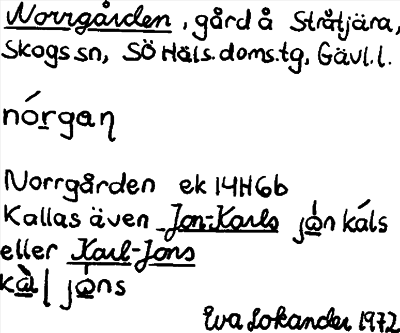 Norrgården, gård å Stråtjära,
Skogs sn, SÖ Häls. doms.tg, Gävl.l.
nó̱rgaɳ
Norrgården ek 14H6b
Kallas även Jon-Karls jɑ̱̍n káls
eller Karl-Jons
kɑ̱̀l jɑ̱̍ns
Eva Lokander 1972